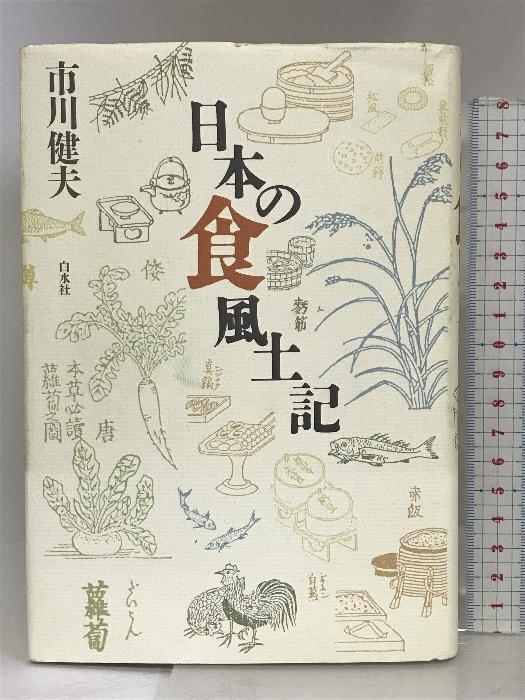 日本の食風土記
市川健夫
白水社
松風
煎餅
倭
本草必讀
蘿蔔之圖
唐
真鍋
赤飯
白蒸
蘿蔔
だいこん
8
7
6
5
4
3
2
1
9
8
7
6
5
4
3
2
1